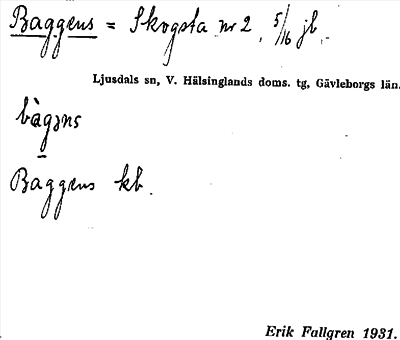 Baggens = Skogsta nr 2, 5/16 jb.
Ljusdals sn, V. Hälsinglands doms. tg, Gävleborgs län.
bàgəns
Baggens kb.
Erik Fallgren 1931.